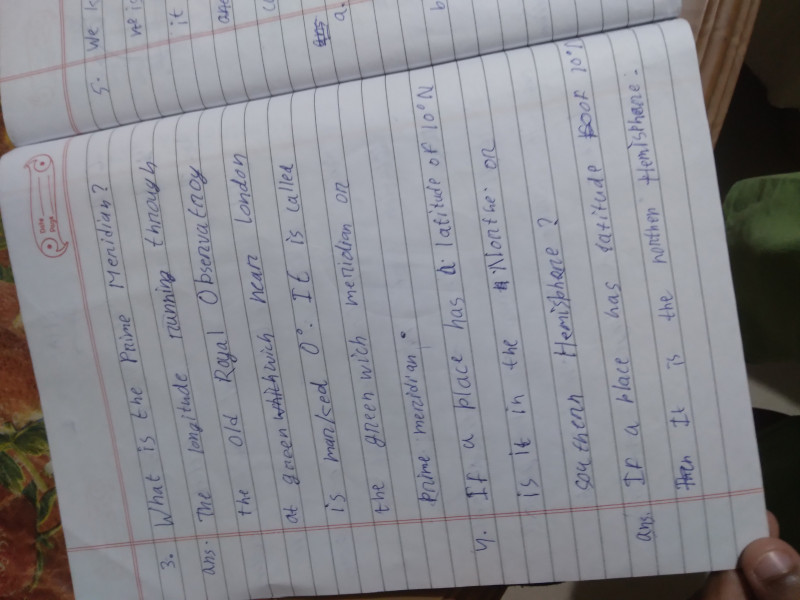 Date
Page
3. What is the Prime Meridian?
ans. The longitude running through
the old Royal Observatroy
at green which wich near london
is marked 0°. It is called
the green wich meridian or
prime meridian.
4. If a place has a latitude of 10°N
is it in the Northe or
southern Hemisphere?
ans. If a place has latitude of 10°N
Then It is the northen Hemisphere.
5. We k
we is
it
are
a.
b